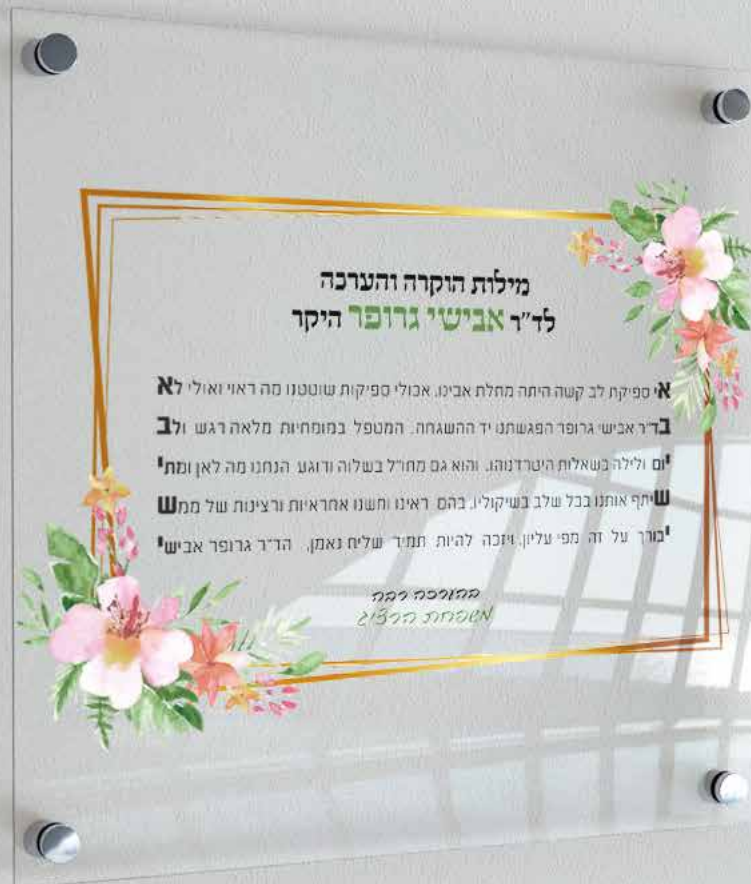 מילות הוקרה והערכה
לד״ר אבישי גרופר היקר
אי ספיקת לב קשה היתה מחלת אבינו, אכולי ספיקות שוטטנו מה ראוי ואולי לא
בד״ר אבישי גרופר הפגשתנו יד ההשגחה. המטפל במומחיות מלאה רגש ולב
יום ולילה בשאלות הטרדנוהו, והוא גם מחו״ל בשלוה ודוגע הנחנו מה לאן ומתי
שיתף אותנו בכל שלב בשיקוליו, בהם ראינו וחשנו אחראיות ורצינות של ממש
יבורך על זה מפי עליון, ויזכה להיות תמיד שליח נאמן, הד״ר גרופר אבישי
בהערכה רבה
משפחת הרציג